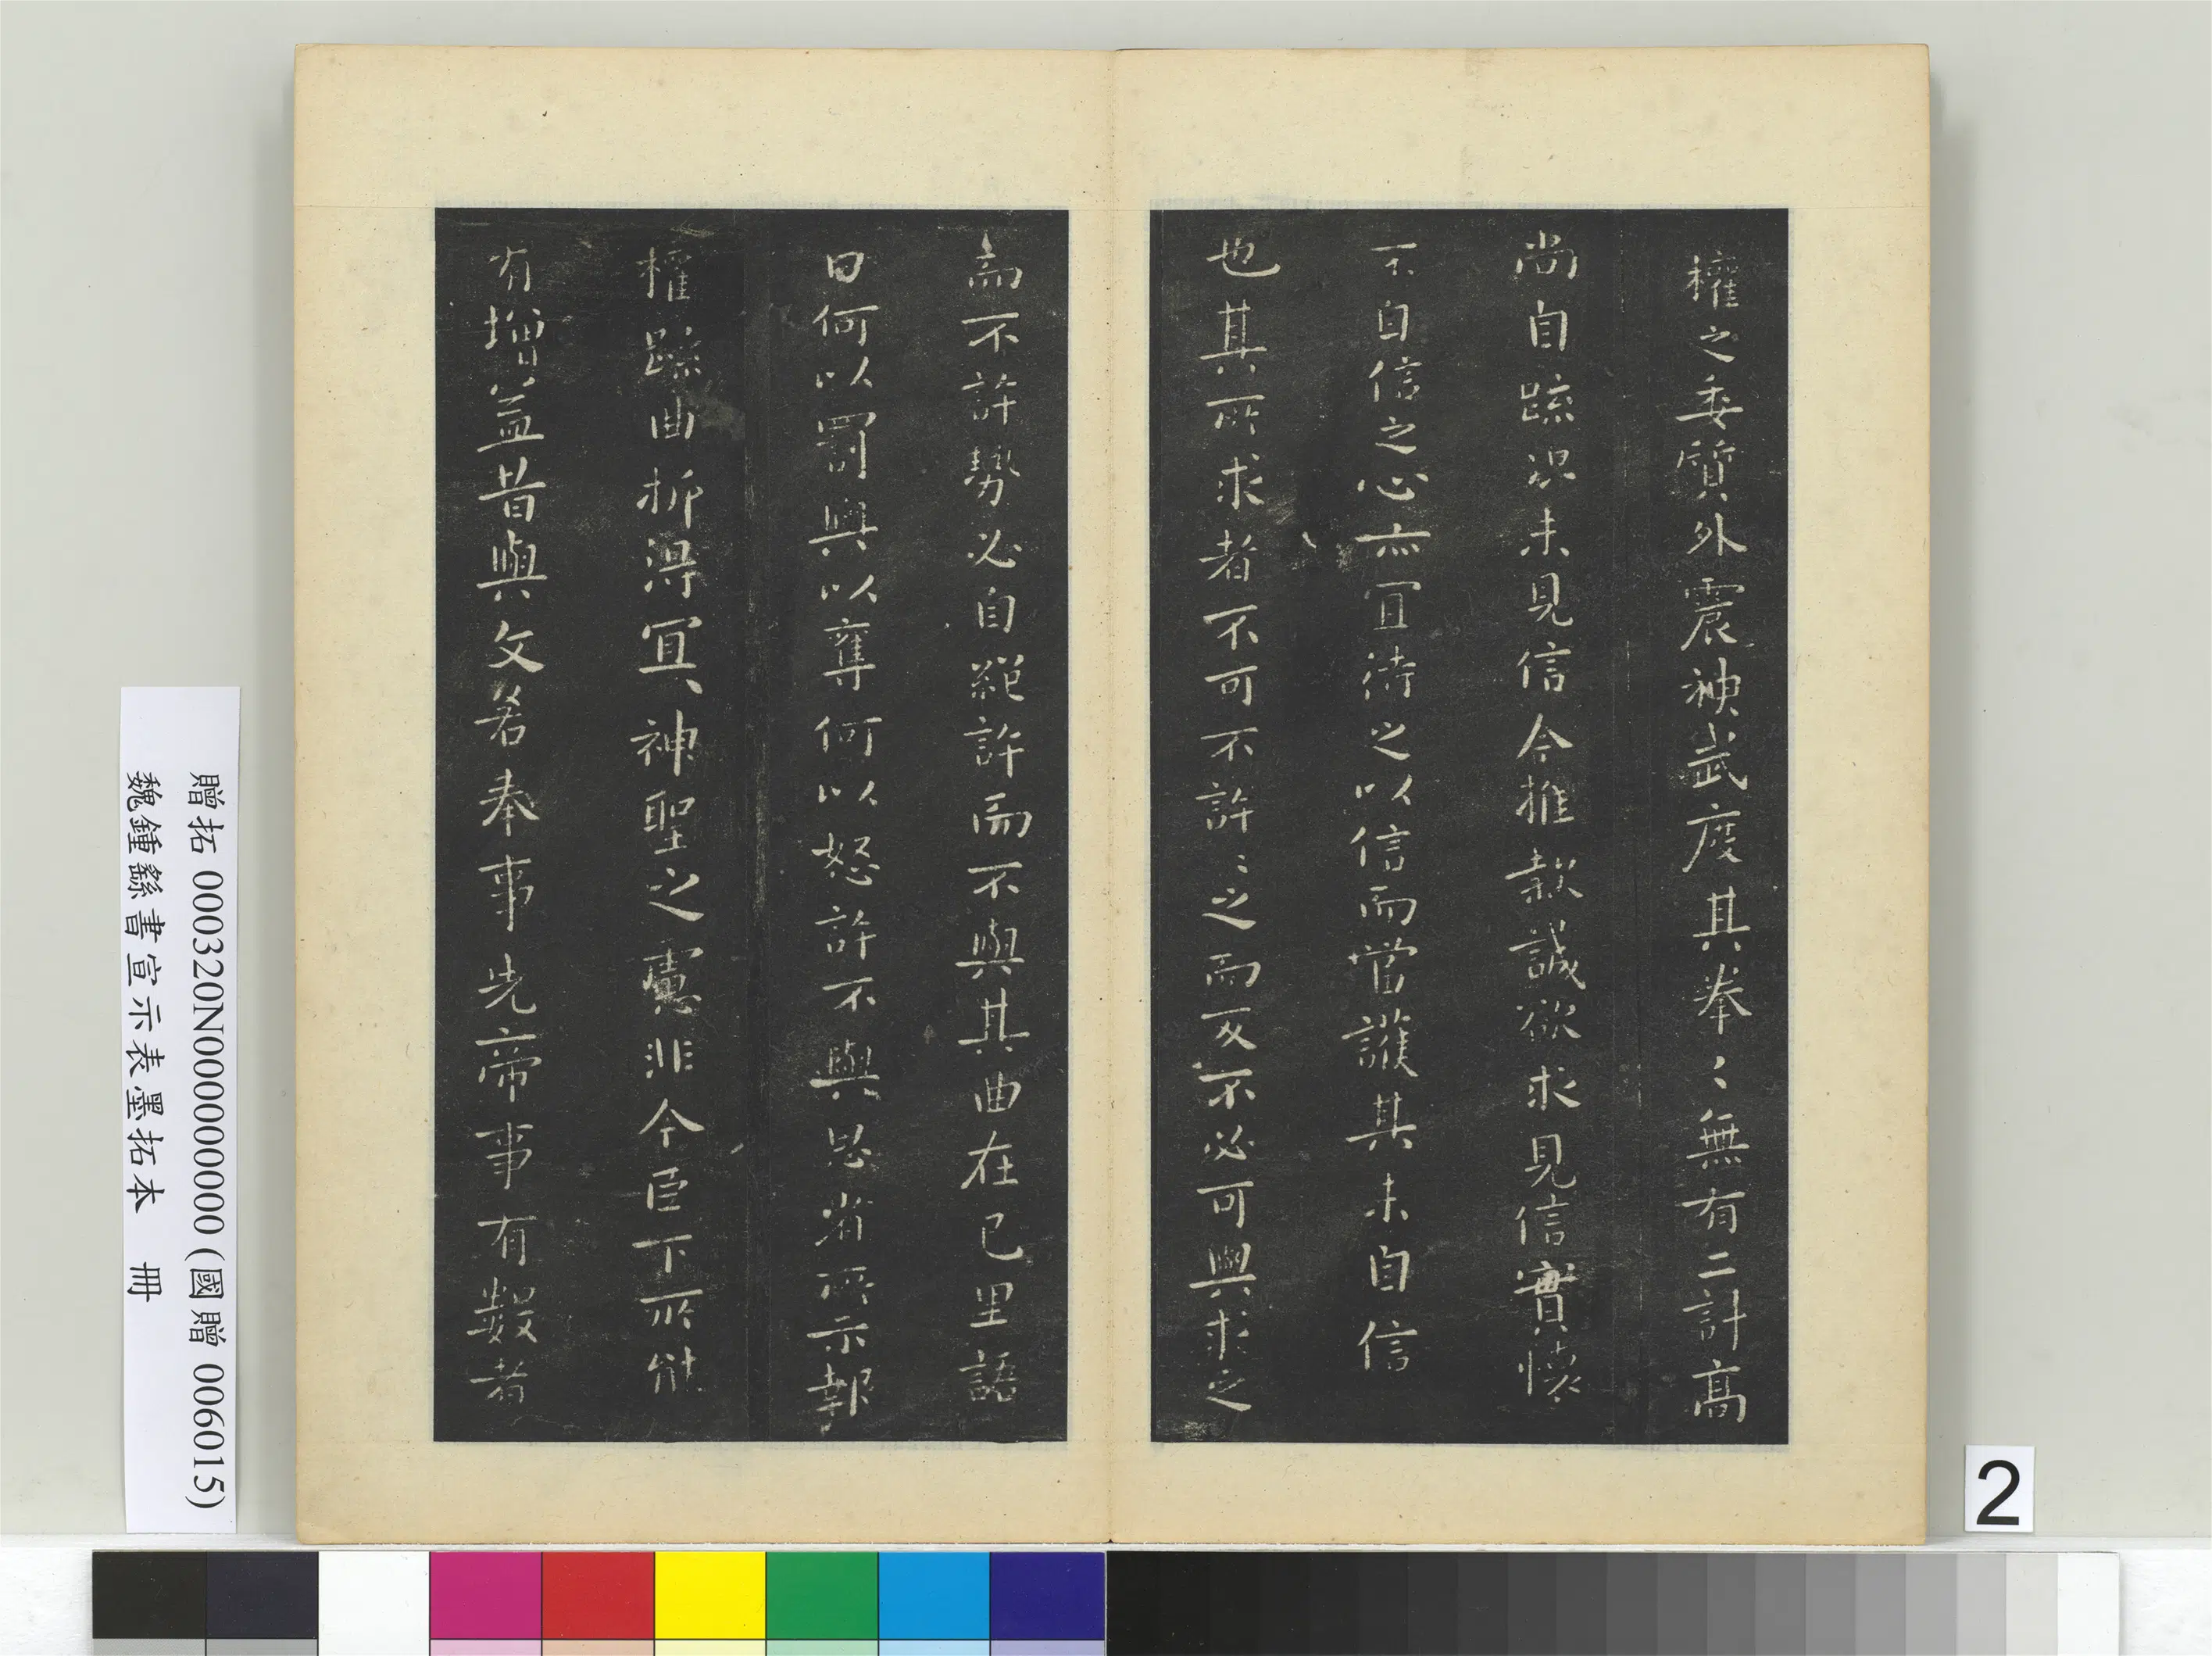 權之委質外震神武度其拳〻無有二計高
尚自疏況未見信今推款誠欲求見信實懷
不自信之心亦宜待之以信而當護其未自信
也其所求者不可不許〻之而反不必可與求之
而不許勢必自絕許而不與其曲在己里語
曰何以罰與以奪何以怒許不與思省所示報
權疏曲折得宜神聖之慮非今臣下所能
有增益昔與文若奉事先帝事有數者
贈拓 000320N000000000 (國贈 006015)
魏鍾繇書宣示表墨拓本 冊
2